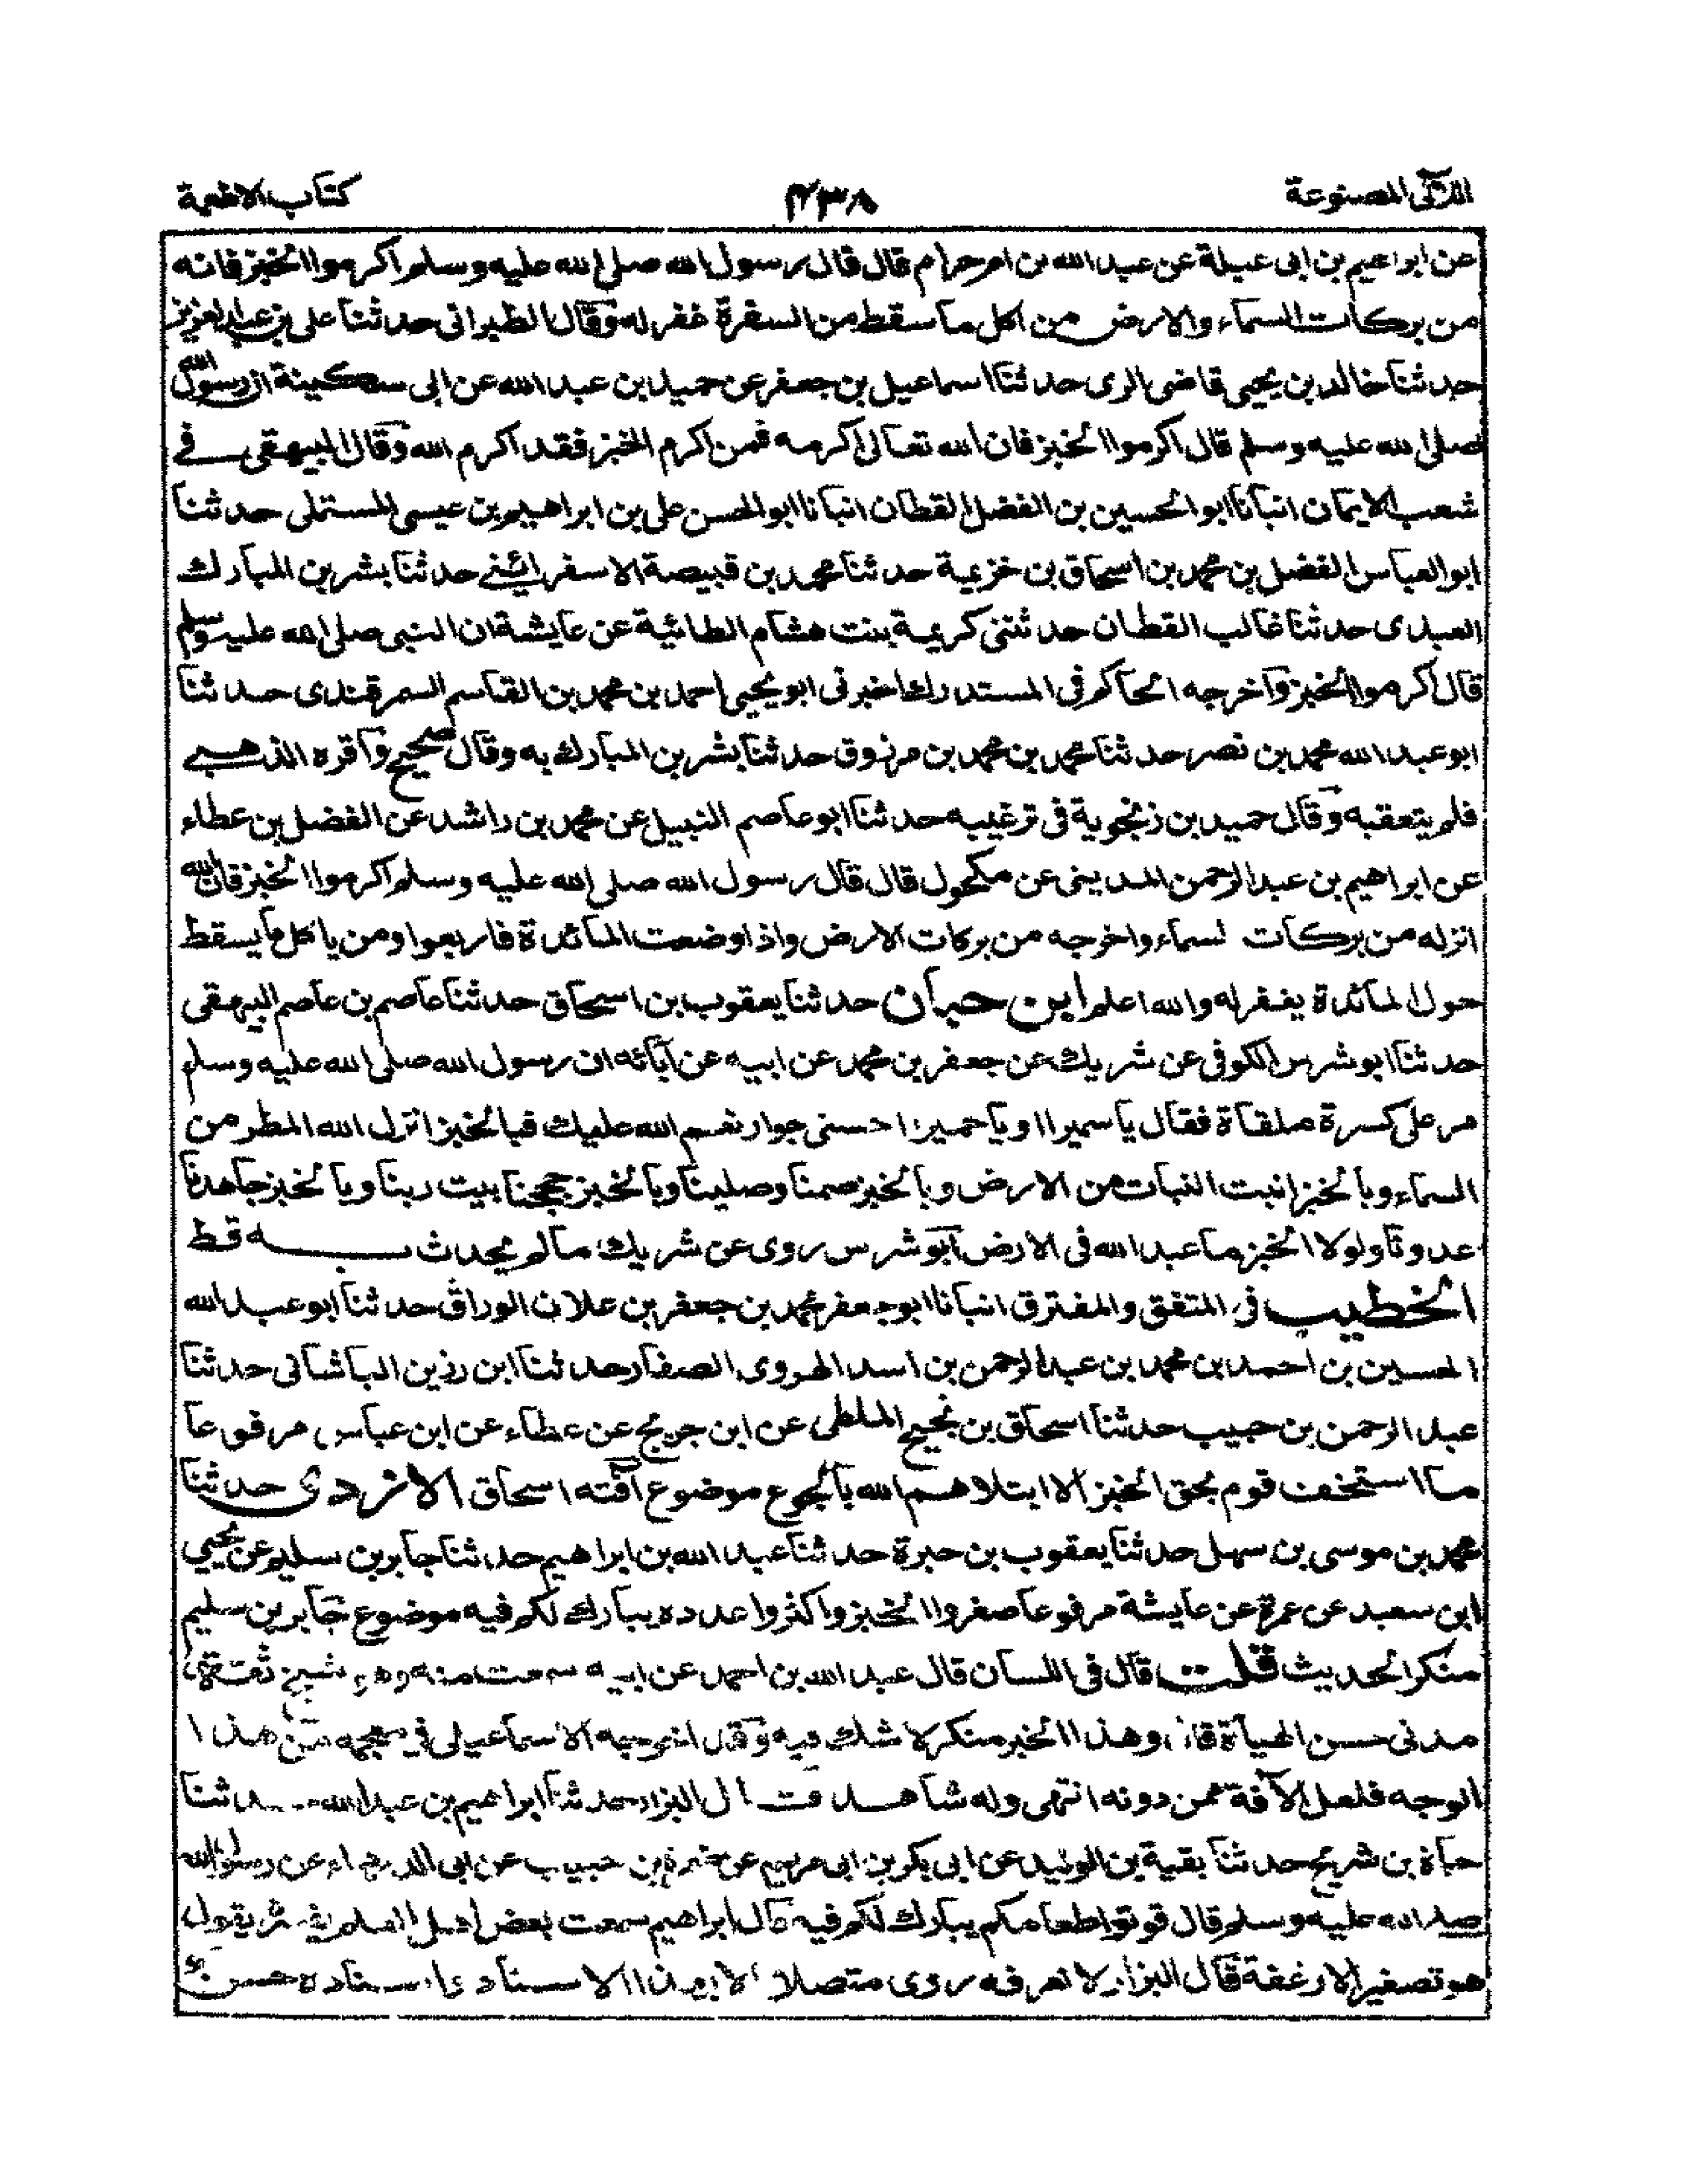 اللآلی المصنوعة
۴۳۸
کتاب الاطعمة
عن ابراهیم بن ابی عبلة عن عبد الله بن ام حرام قال قال رسول الله صلی الله علیه وسلم اکرموا الخبز فانه
من برکات السماء والارض من اکل ما سقط من السفرة غفر له وقال الطبرانی حدثنا علی بن عبد العزیز
حدثنا خالد بن یحیی قاضی الری حدثنا اسماعیل بن جعفر عن حمید بن عبد الله عن ابی سکینة ان رسول الله
صلی الله علیه وسلم قال اکرموا الخبز فان الله تعالی اکرمه فمن اکرم الخبز فقد اکرم الله وقال البیهقی فی
شعب الایمان انبانا ابوالحسین بن الفضل القطان انبانا ابوالحسن علی بن ابراهیم بن عیسی المستملی حدثنا
ابوالعباس الفضل بن محمد بن اسحاق بن خزیمة حدثنا محمد بن قبیصة الاسفرائنی حدثنا بشر بن المبارك
العبدی حدثنا غالب القطان حدثتنی کریمة بنت هشام الطائیة عن عایشة ان النبی صلی الله علیه وسلم
قال اکرموا الخبز وآخرجه الحاکم فی المستدرك اخبرنی ابو یحیی احمد بن محمد بن القاسم السمرقندی حدثنا
ابو عبد الله محمد بن نصر حدثنا محمد بن محمد بن مرزوق حدثنا بشر بن المبارك به وقال صحیح وآقره الذهبی
فلم یتعقبه وقال حمید بن زنجویة فی ترغیبه حدثنا ابوعاصم النبیل عن محمد بن راشد عن الفضل بن عطاء
عن ابراهیم بن عبد الرحمن المدینی عن مکحول قال قال رسول الله صلی الله علیه وسلم اکرموا الخبز فان الله
انزله من برکات لسماء واخرجه من برکات الارض واذا وضعت المائدة فاربعوا ومن یاکل ما یسقط
حول المائدة یغفر له والله اعلم ابن حبان حدثنا یعقوب بن اسحاق حدثنا عاصم بن عاصم البیهقی
حدثنا ابو شرس الکوفی عن شریك عن جعفر بن محمد عن ابیه عن آبائه ان رسول الله صلی الله علیه وسلم
مر علی کسرة ملقاة فقال یا سمیرا او یا حمیرا احسنی جوار نعم الله علیك فبالخبز انزل الله المطر من
السماء وبالخبز انبت النبات من الارض وبالخبز صمنا وصلینا وبالخبز حججنا بیت ربنا وبالخبز جاهدنا
عدونا ولولا الخبز ما عبد الله فی الارض ابو شرس روی عن شریك ما لم یحدث به قط
الخطیب فی المتفق والمفترق انبانا ابو جعفر محمد بن جعفر بن علان الوراق حدثنا ابو عبد الله
الحسین بن احمد بن محمد بن عبد الرحمن بن اسد الهروی الصفار حدثنا ابن رزین الباشانی حدثنا
عبد الرحمن بن حبیب حدثنا اسحاق بن نجیح الملطی عن ابن جریج عن عطاء عن ابن عباس مرفوعا
ما استخف قوم بحق الخبز الا ابتلاهم الله بالجوع موضوع آفته اسحاق الازدی حدثنا
محمد بن موسی بن سهل حدثنا یعقوب بن حبرة حدثنا عبد الله بن ابراهیم حدثنا جابر بن سلیم عن یحیی
ابن سعید عن عمرة عن عایشة مرفوعا صغروا الخبز واکثروا عدده یبارك لکم فیه موضوع جابر بن سلیم
منکر الحدیث قلت قال فی اللسان قال عبد الله بن احمد عن ابیه سمعت منه وهو شیخ ثقة
مدنی حسن الهیأة قال وهذا الخبر منکر لا شك فیه وقد اخرجه الاسماعیلی فی معجمه من هذا ا
لوجه فلعل الآفة ممن دونه انتهی وله شاهد قال البزار حدثنا ابراهیم بن عبد الله حدثنا
حیاة بن شریح حدثنا بقیة بن الولید عن ابی بکر بن ابی مریم عن ضمرة بن حبیب عن ابی الدرداء عن رسول الله
صلی الله علیه وسلم قال قوتوا طعامکم یبارك لکم فیه قال ابراهیم سمعت بعض اهل العلم یفسره یقول
هو تصغیر الارغفة قال البزار لا نعرفه روی متصلا الا بهذا الاسناد واسناده حسن